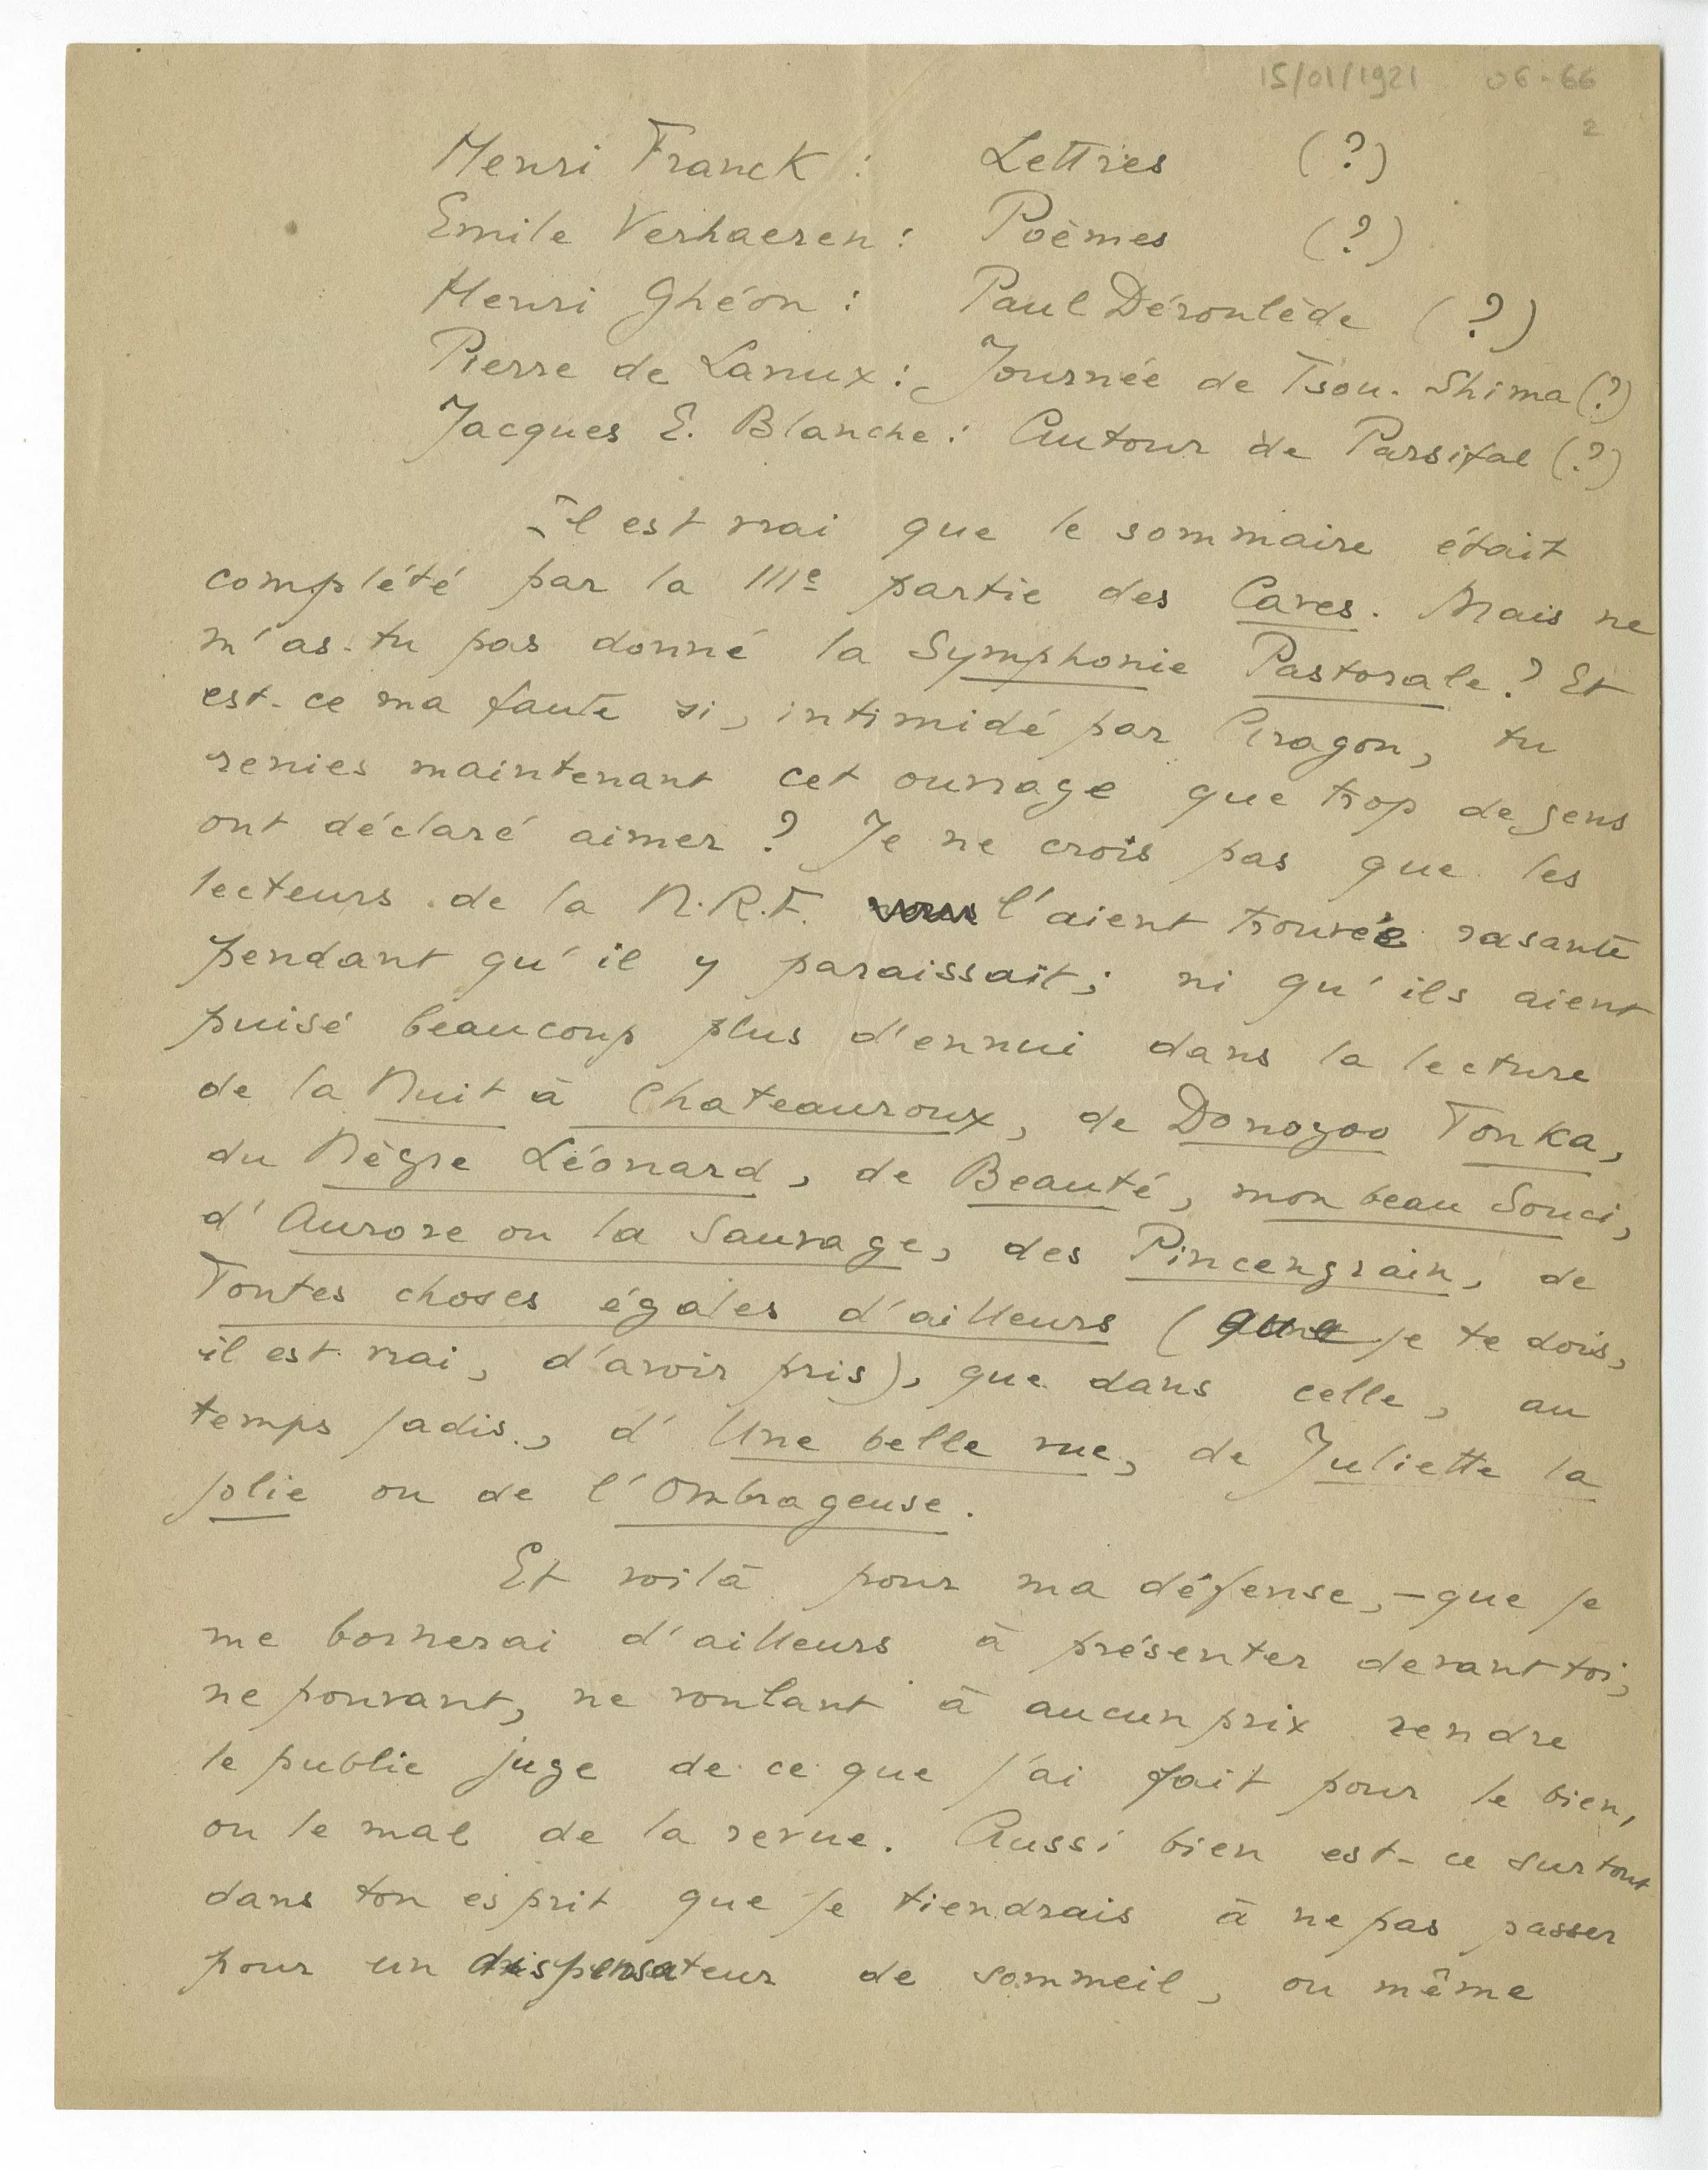 15/01/1921 06-66
2
Henri Franck : Lettres (?)
Emile Verhaeren : Poèmes (?)
Henri Ghéon : Paul Déroulède (?)
Pierre de Lanux : Journée de Tsou-Shima (?)
Jacques E. Blanche : Autour de Parsifal (?)
Il est vrai que le sommaire était
complété par la IIIe partie des Caves. Mais ne
m'as-tu pas donné la Symphonie Pastorale ? Et
est-ce ma faute si, intimidé par Aragon, tu
renies maintenant cet ouvrage que trop de gens
ont déclaré aimer ? Je ne crois pas que les
lecteurs de la N.R.F. l'aient trouvée rasante
pendant qu'il y paraissait ; ni qu'ils aient
puisé beaucoup plus d'ennui dans la lecture
de la Nuit à Chateauroux, de Donogoo Tonka,
du Nègre Léonard, de Beauté, mon beau Souci,
d'Aurore ou la Sauvage, des Pincengrain, de
Toutes choses égales d'ailleurs (que je te dois,
il est vrai, d'avoir pris), que dans celle, au
temps jadis, d'Une belle vue, de Juliette la
jolie ou de l'Ombrageuse.
Et voilà pour ma défense, – que je
me bornerai d'ailleurs à présenter devant toi,
ne pouvant, ne voulant à aucun prix rendre
le public juge de ce que j'ai fait pour le bien,
ou le mal de la revue. Aussi bien est-ce surtout
dans ton esprit que je tiendrais à ne pas passer
pour un dispensateur de sommeil, ou même